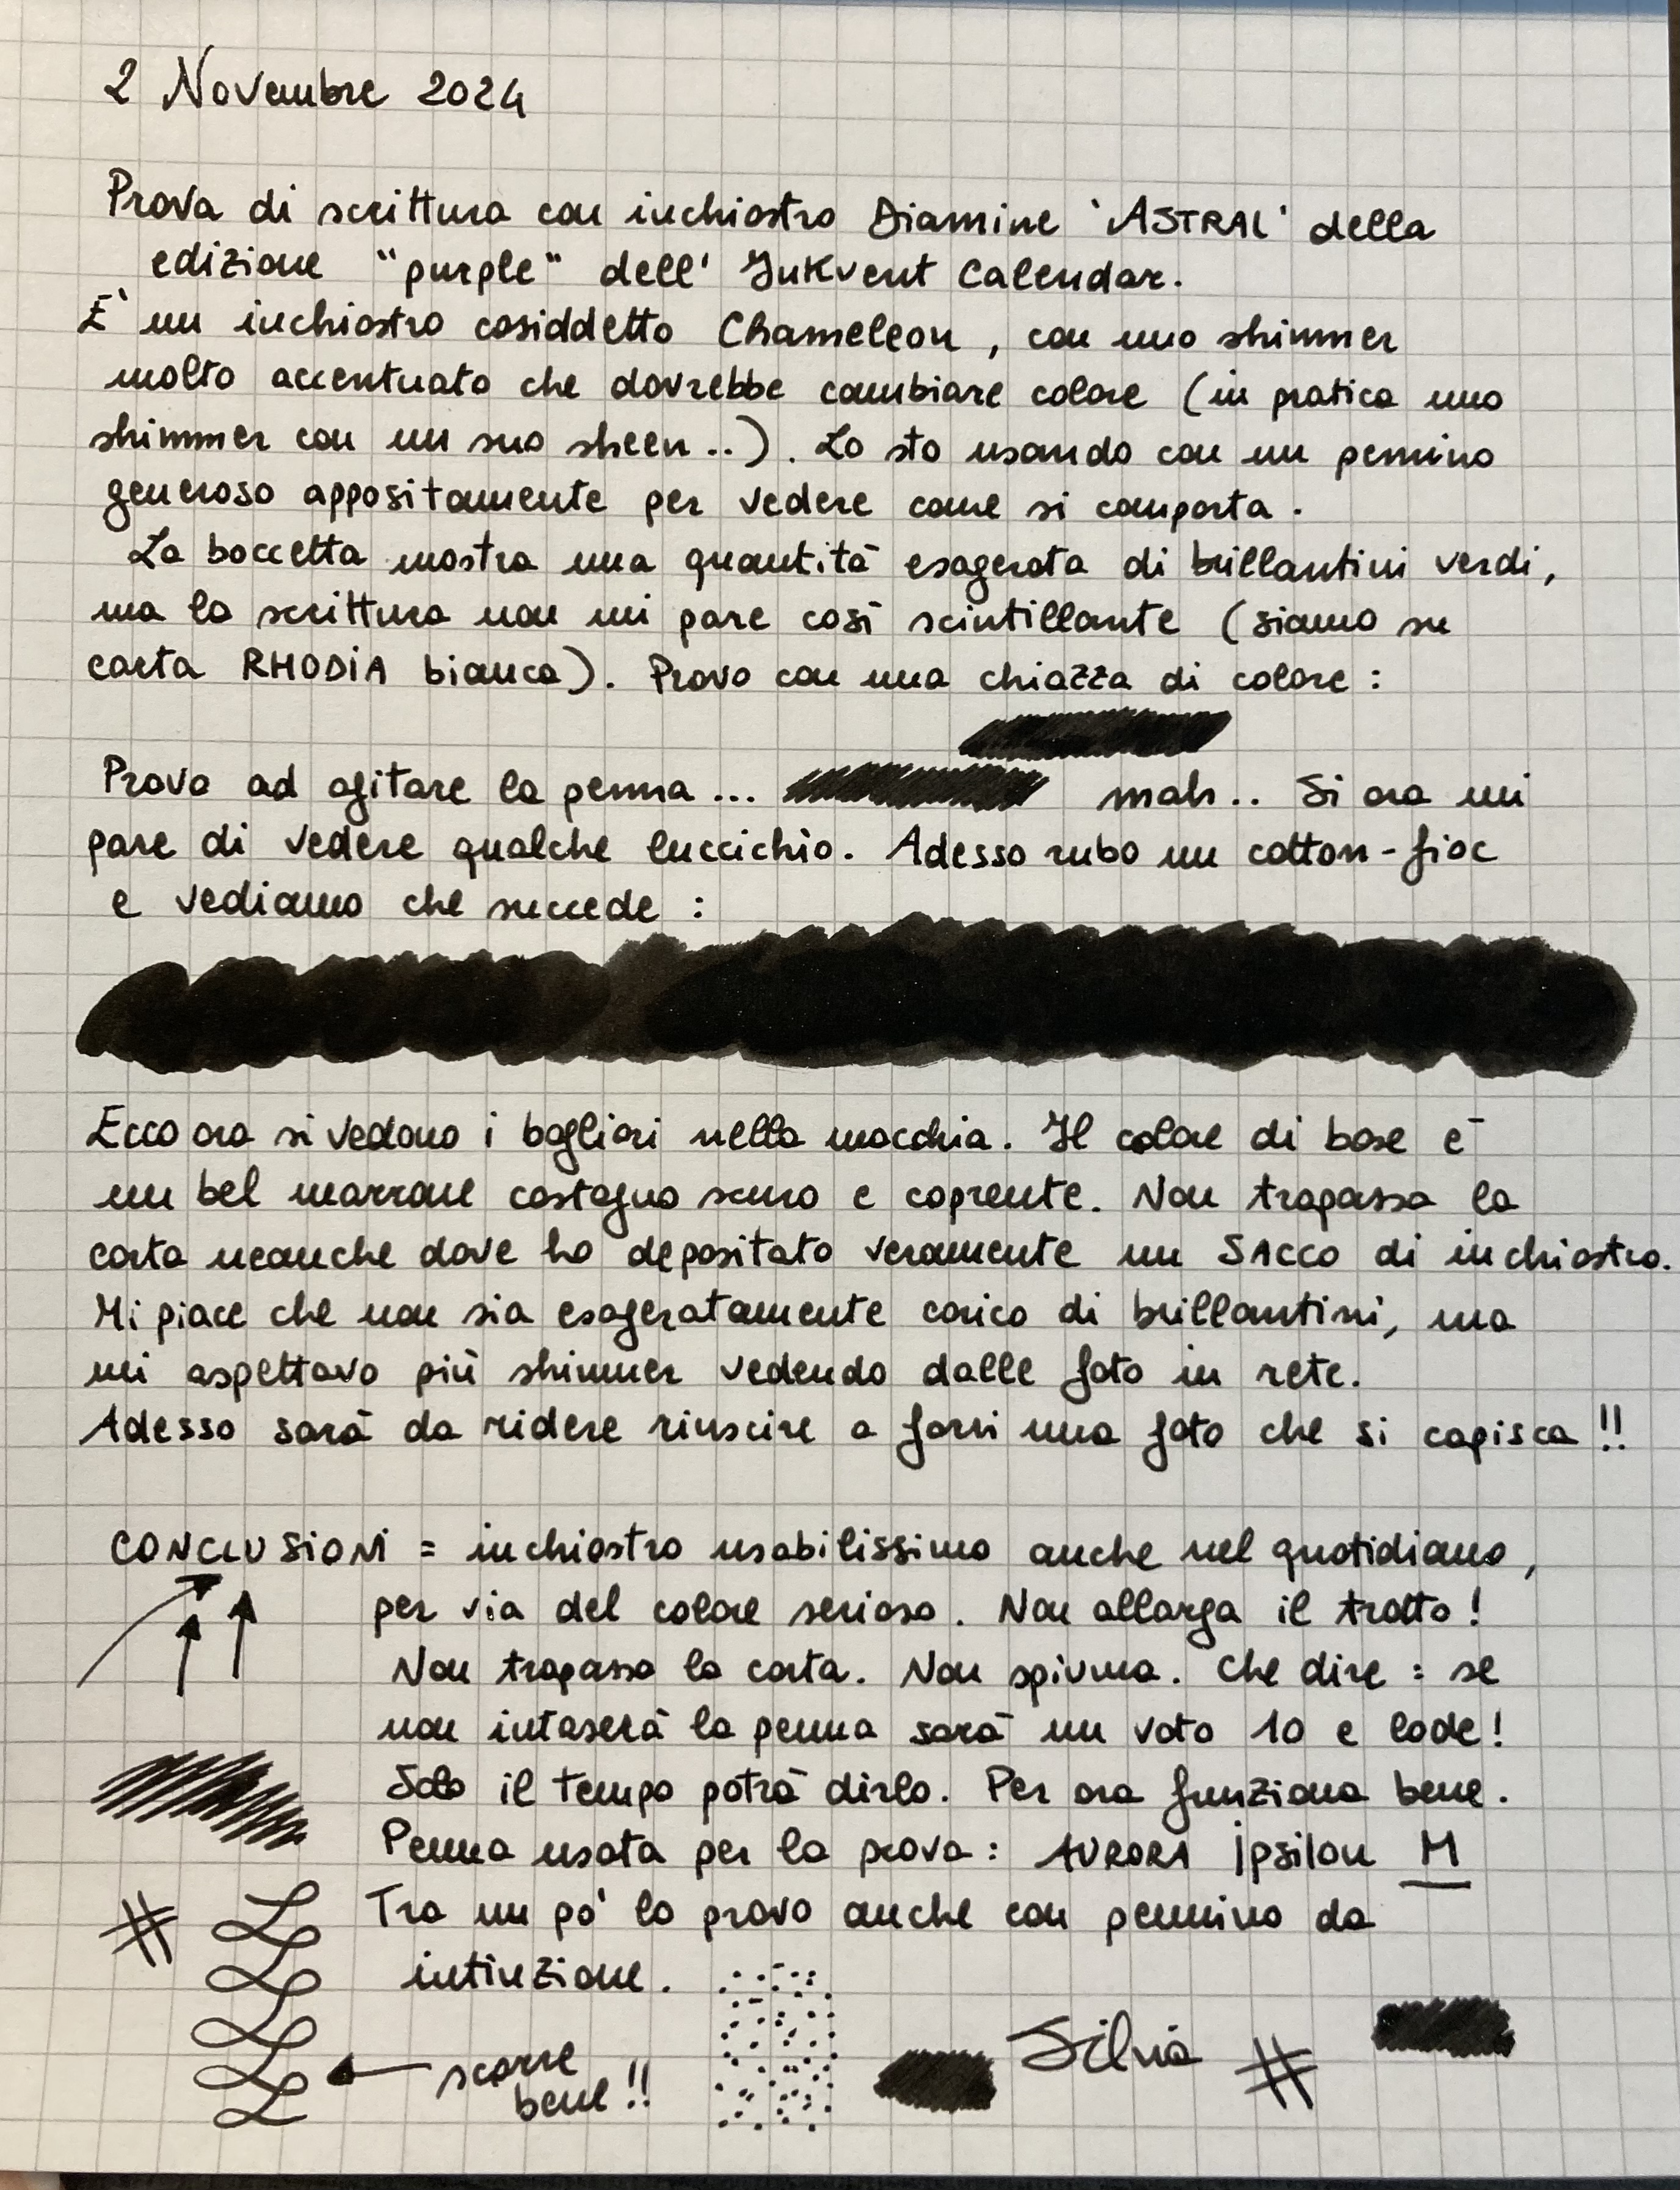 2 Novembre 2024
Prova di scrittura con inchiostro Diamine 'ASTRAL' della
edizione "purple" dell' InKvent Calendar.
E' un inchiostro cosiddetto Chameleon, con uno shimmer
molto accentuato che dovrebbe cambiare colore (in pratica uno
shimmer con un suo sheen..). Lo sto usando con un pennino
generoso appositamente per vedere come si comporta.
La boccetta mostra una quantità esagerata di brillantini verdi,
ma la scrittura non mi pare così scintillante (siamo su
carta RHODIA bianca). Provo con una chiazza di colore:
Provo ad agitare la penna... mah.. Si ora mi
pare di vedere qualche luccichio. Adesso rubo un cotton-fioc
e vediamo che succede:
Ecco ora si vedono i bagliori nella macchia. Il colore di base è
un bel marrone castagno scuro e coprente. Non trapassa la
carta neanche dove ho depositato veramente un SACCO di inchiostro.
Mi piace che non sia esageratamente carico di brillantini, ma
mi aspettavo più shimmer vedendo dalle foto in rete.
Adesso sarà da ridere riuscire a farvi una foto che si capisca!!
CONCLUSIONI = inchiostro usabilissimo anche nel quotidiano,
per via del colore serioso. Non allarga il tratto!
Non trapassa la carta. Non spiuma. Che dire: se
non intaserà la penna sarà un voto 10 e lode!
Solo il tempo potrà dirlo. Per ora funziona bene.
Penna usata per la prova: AURORA Ipsilon M
# Tra un pò lo provo anche con pennino da
intinzione.
scorre
bene!!
Silvia #